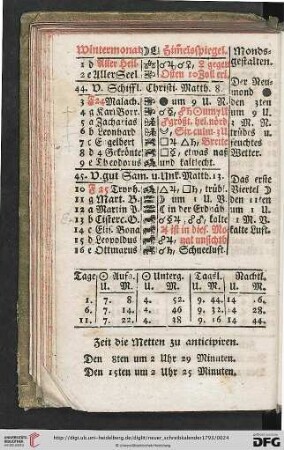 Wintermonad Himelsspiegel. Monds-
gestalten.
1 d Aller Heil-
2 e Aller Seel. Osten 10 Zoll erl.
44. V. Schiffl. Christi. Matth. 8.
Der Neu-
mond
3 F 24 Malach. um 9 U. N. den 3ten
4 a Karl Borr. um 9 U.
5 a Zacharias größt. hel. nörd N. M.
6 b Leonhard trübes u.
7 c Engelbert Breite feuchtes
8 d 4 Gekrönte etwas naß Wetter.
9 e Theodorus und kaltlecht.
45. V. gut Sam. u. Unk. Matth. 13. Das erste
10 F 25 Tryph. trüb. Viertel
11 g Mart. B. um 1 U. V. den 11ten
12 a Martin P. in der Erdnäh um 1 U.
13 b kalte V. M.
14 c ist in dies. Mo- kalte Luft.
15 d Leopoldus nat unsichtb
16 e Ottmarus Schneeluft.
Tage Aufg. Unterg. Tagsl. Nachtl.
U. M. U. M. U. M. U. M.
1. 7. 8. 4. 52. 9. 44. 14. 6.
6. 7. 14. 4. 46. 9. 32. 14. 28.
11. 7. 22. 4. 18. 9. 16. 14. 44.
Zeit die Metten zu anticipiren.
Den 8ten um 2 Uhr 29 Minuten.
Den 15ten um 2 Uhr 25 Minuten.
UNIVERSITÄTS-
BIBLIOTHEK
HEIDELBERG
http://digi.ub.uni-heidelberg.de/diglit/neuer_schreibkalender1793/0024
© Universitätsbibliothek Heidelberg
DFG